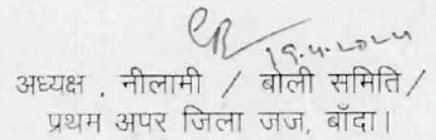 19.4.2024
अध्यक्ष , नीलामी / बोली समिति /
प्रथम अपर जिला जज, बाँदा।